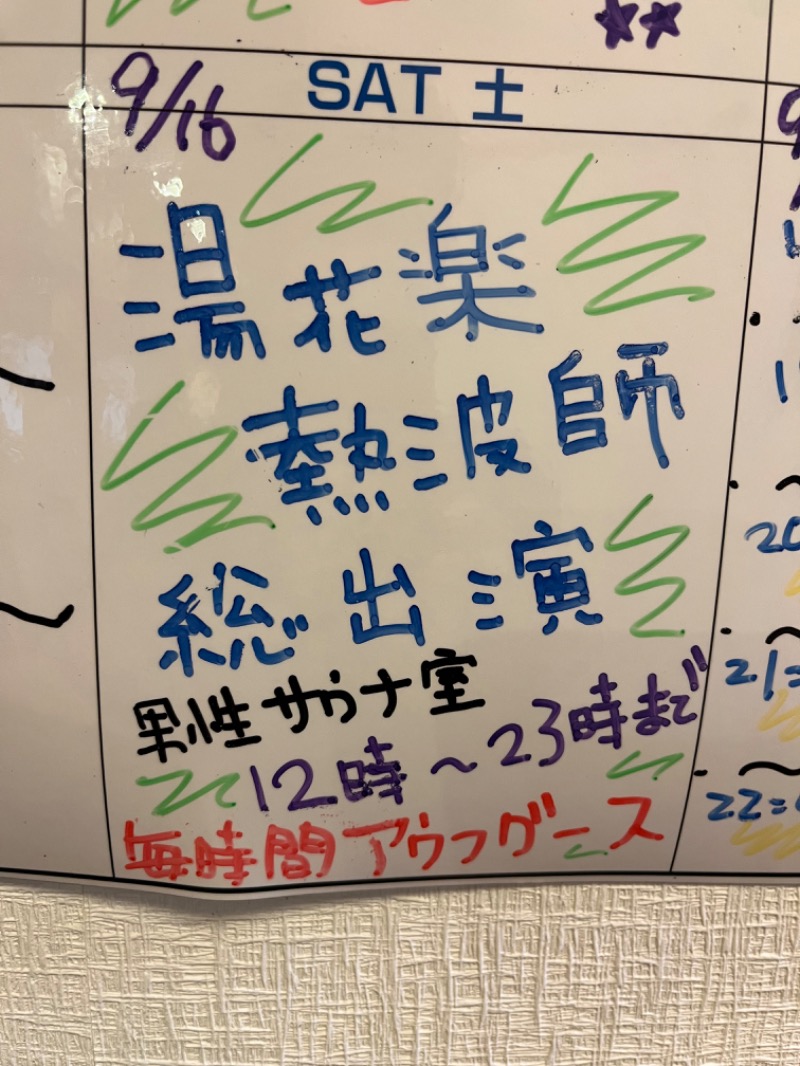 SAT 土
9/16
湯花楽
熱波師
総出演
男性サウナ室
12時～23時まで
毎時間アウフグース
20
21=
22=